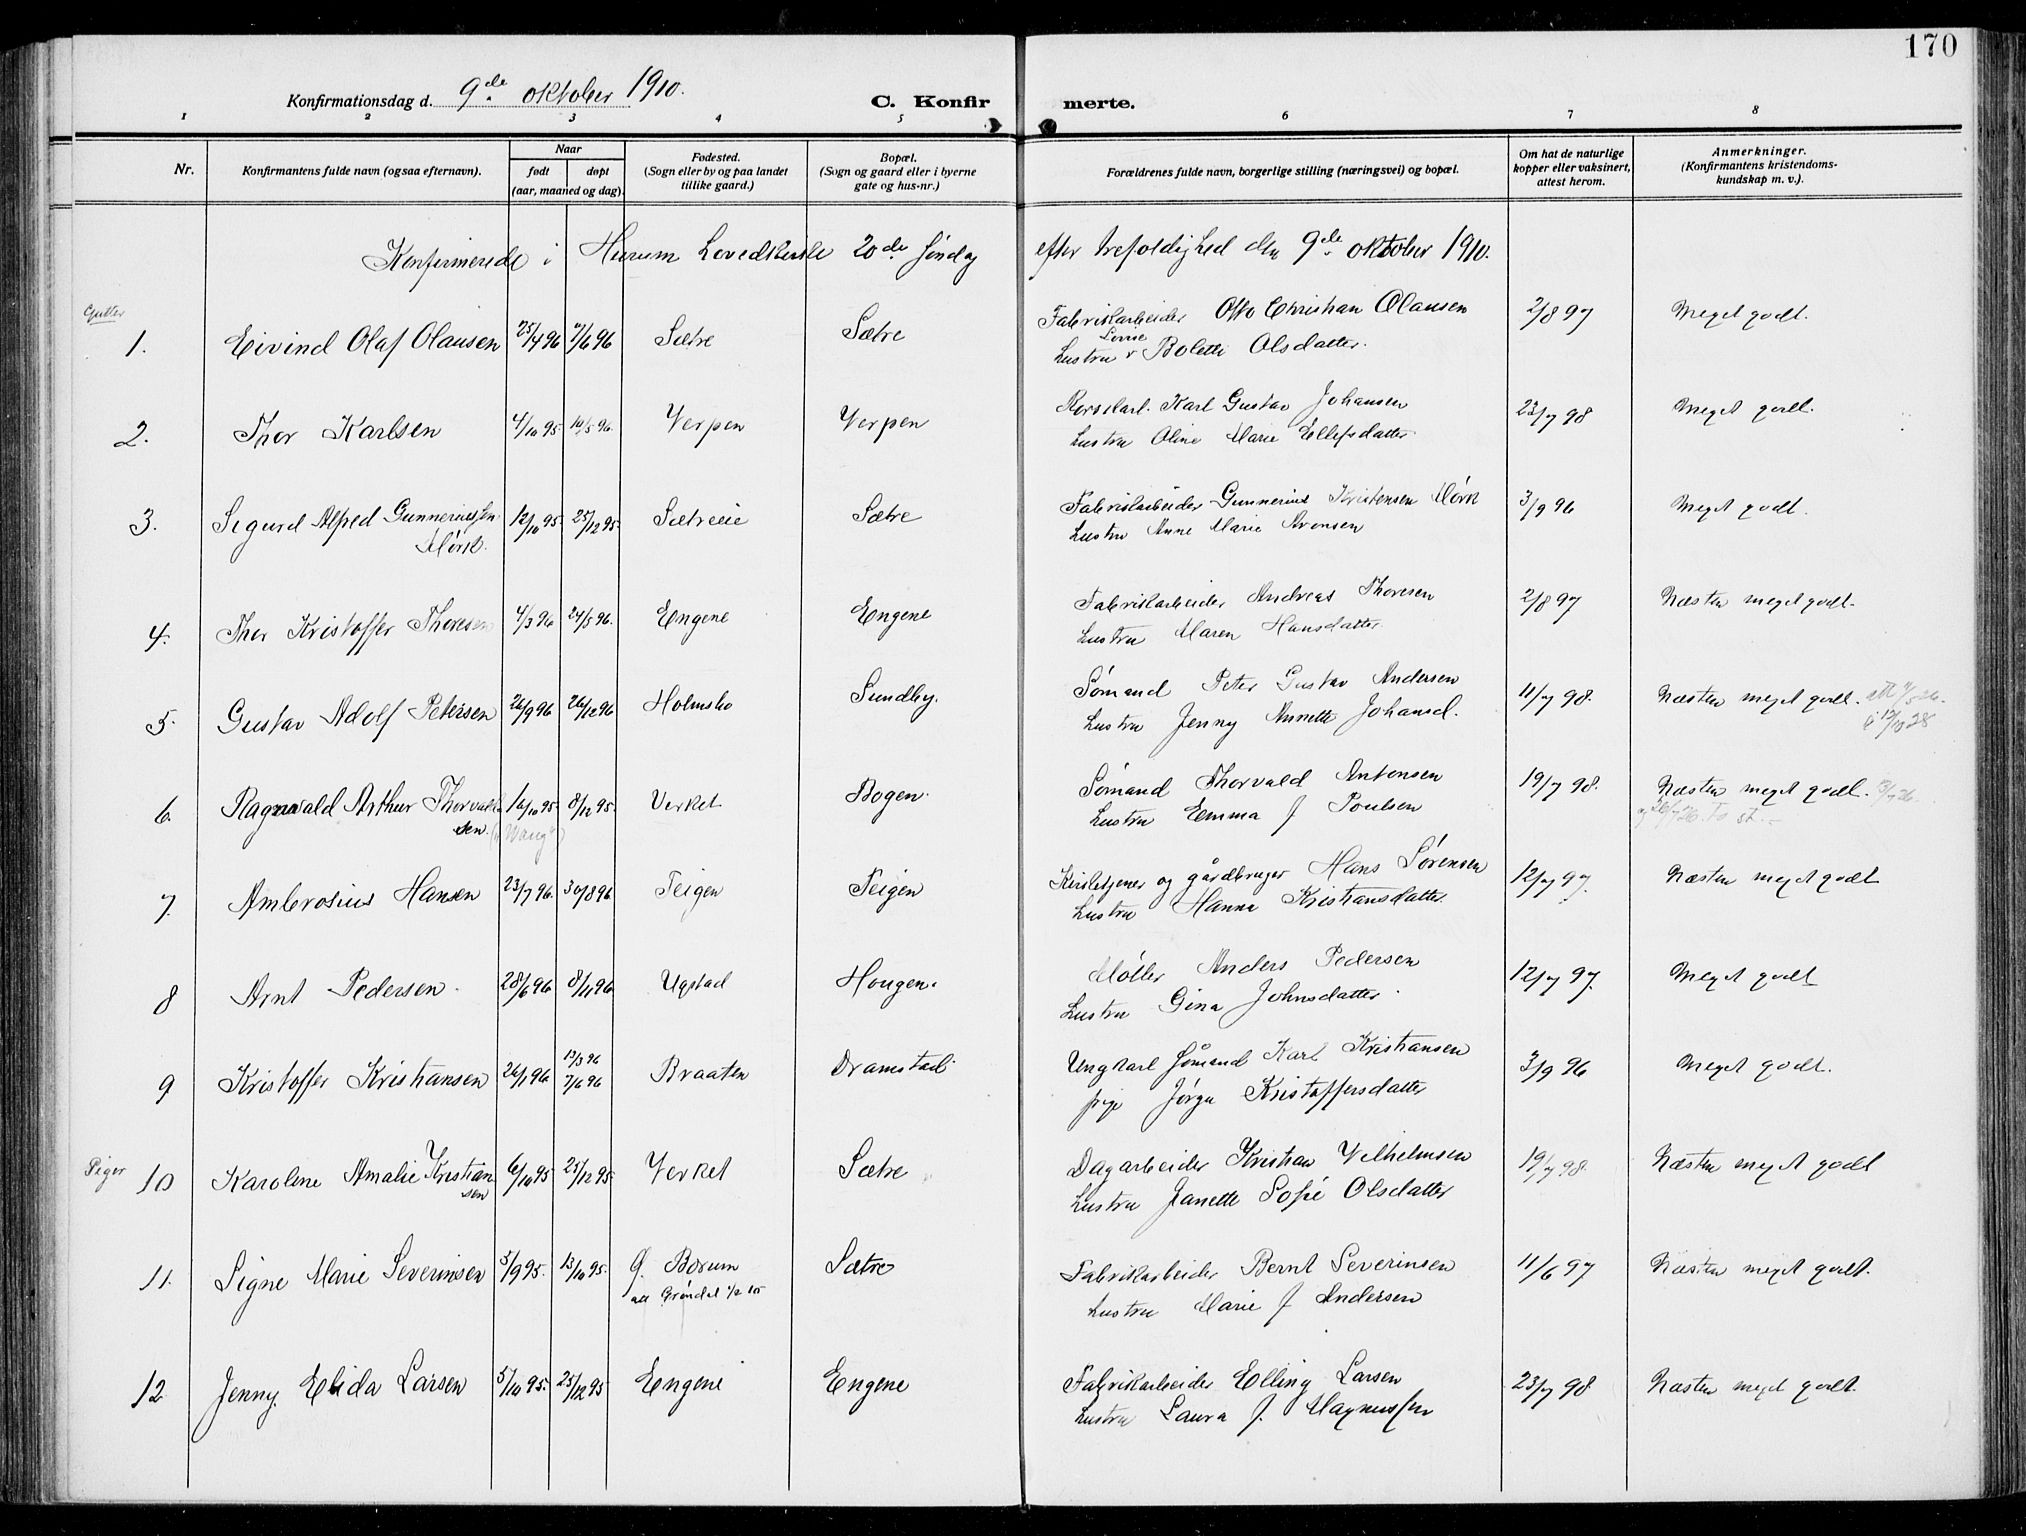 170
Konfirmationsdag d. 9de oktober 1910.
C. Konfir merte.
1 2 3 4 5 6 7 8
Nr.
Konfirmantens fulde navn (ogsaa efternavn).
Naar
født døpt
(aar, maaned og dag).
Fødested.
(Sogn eller by og paa landet
tillike gaard.)
Bopæl.
(Sogn og gaard eller i byerne
gate og hus-nr.)
Forældrenes fulde navn, borgerlige stilling (næringsvei) og bopæl.
Om hat de naturlige
kopper eller vaksinert,
attest herom.
Anmerkninger.
(Konfirmantens kristendoms-
kundskap m. v.).
Konfirmerede i Hurum Hovedkirke 20de Søndag efter trefoldighed den 9de oktober 1910.
Gutter
1. Eivind Olaf Olausen 25/4 96 7/6 96 Sætre Sætre Fabrikarbeider Otto Christian Olausen 2/8 97 Meget godt.
Hustru Lovise Boletti Olsdatter.
2. Thor Karlsen 4/10 95 10/5 96. Verpen Verpen Karl Gustav Johansen 23/7 98 Meget godt.
Hustru Oline Marie Ellefsdatter
3. Sigurd Alfred Gunneriussen 12/10 95 25/12 95. Sætreeie Sætre Fabrikarbeider Gunnerius Kristensen Mørk 3/9 96 Meget godt.
Mørk. Hustru Anne Marie Aronsen
4. Thor Kristoffer Thoresen 4/3 96 24/5 96. Engene Engene Fabrikarbeider Andreas Thoresen 2/8 97 Næsten meget godt.
Hustru Maren Hansdatter.
5. Gustav Adolf Petersen 26/9 96 26/12 96 Holmsbo Sundby. Sømand Peter Gustav Andersen 11/7 98. Næsten meget godt.
Hustru Jenny Annette Johansd.
6. Ragnvald Arthur Thorvald 16/10 95. 8/12 95. Verket Bogen. Sømand Thorvald Antonsen 19/7 98. Næsten meget godt.
sen. Hustru Emma J Poulsen
7. Ambrosius Hansen 23/7 96. 30/8 96 Teigen Teigen Kirketjener og gårdbruger Hans Sørensen 12/7 97. Næsten meget godt
Hustru Hanna Kristiansdatter
8 Arnt Pedersen 28/6 96 8/11 96 Ugstad Hougen. Møller Anders Pedersen 12/7 97. Meget godt
Hustru Gina Johnsdatter.
9 Kristoffer Kristiansen 26/1 96 13/3 96 Braaten Dramstad. Ungkarl Sømand Karl Kristiansen 3/9 96 Meget godt.
7/6 96 pige Jørga Kristoffersdatter
Piger
10 Karoline Amalie Kristian 6/10 95 25/12 95. Verket Sætre Dagarbeider Kristian Vilhelmsen 19/7 98. Næsten meget godt
sen Hustru Janette Sofie Olsdatter
11. Signe Marie Severinsen 5/9 95. 13/10 95. Ø. Bærum Sætre Fabrikarbeider Bernt Severinsen 11/6 97 Næsten meget godt.
att Grøndal 1/2 10 Hustru Marie J Andersen
12 Jenny Elida Larsen 5/10 95. 25/12 95 Engene Engene Fabrikarbeider Elling Larsen 23/7 98 Næsten meget godt.
Hustru Laura J. Magnussen